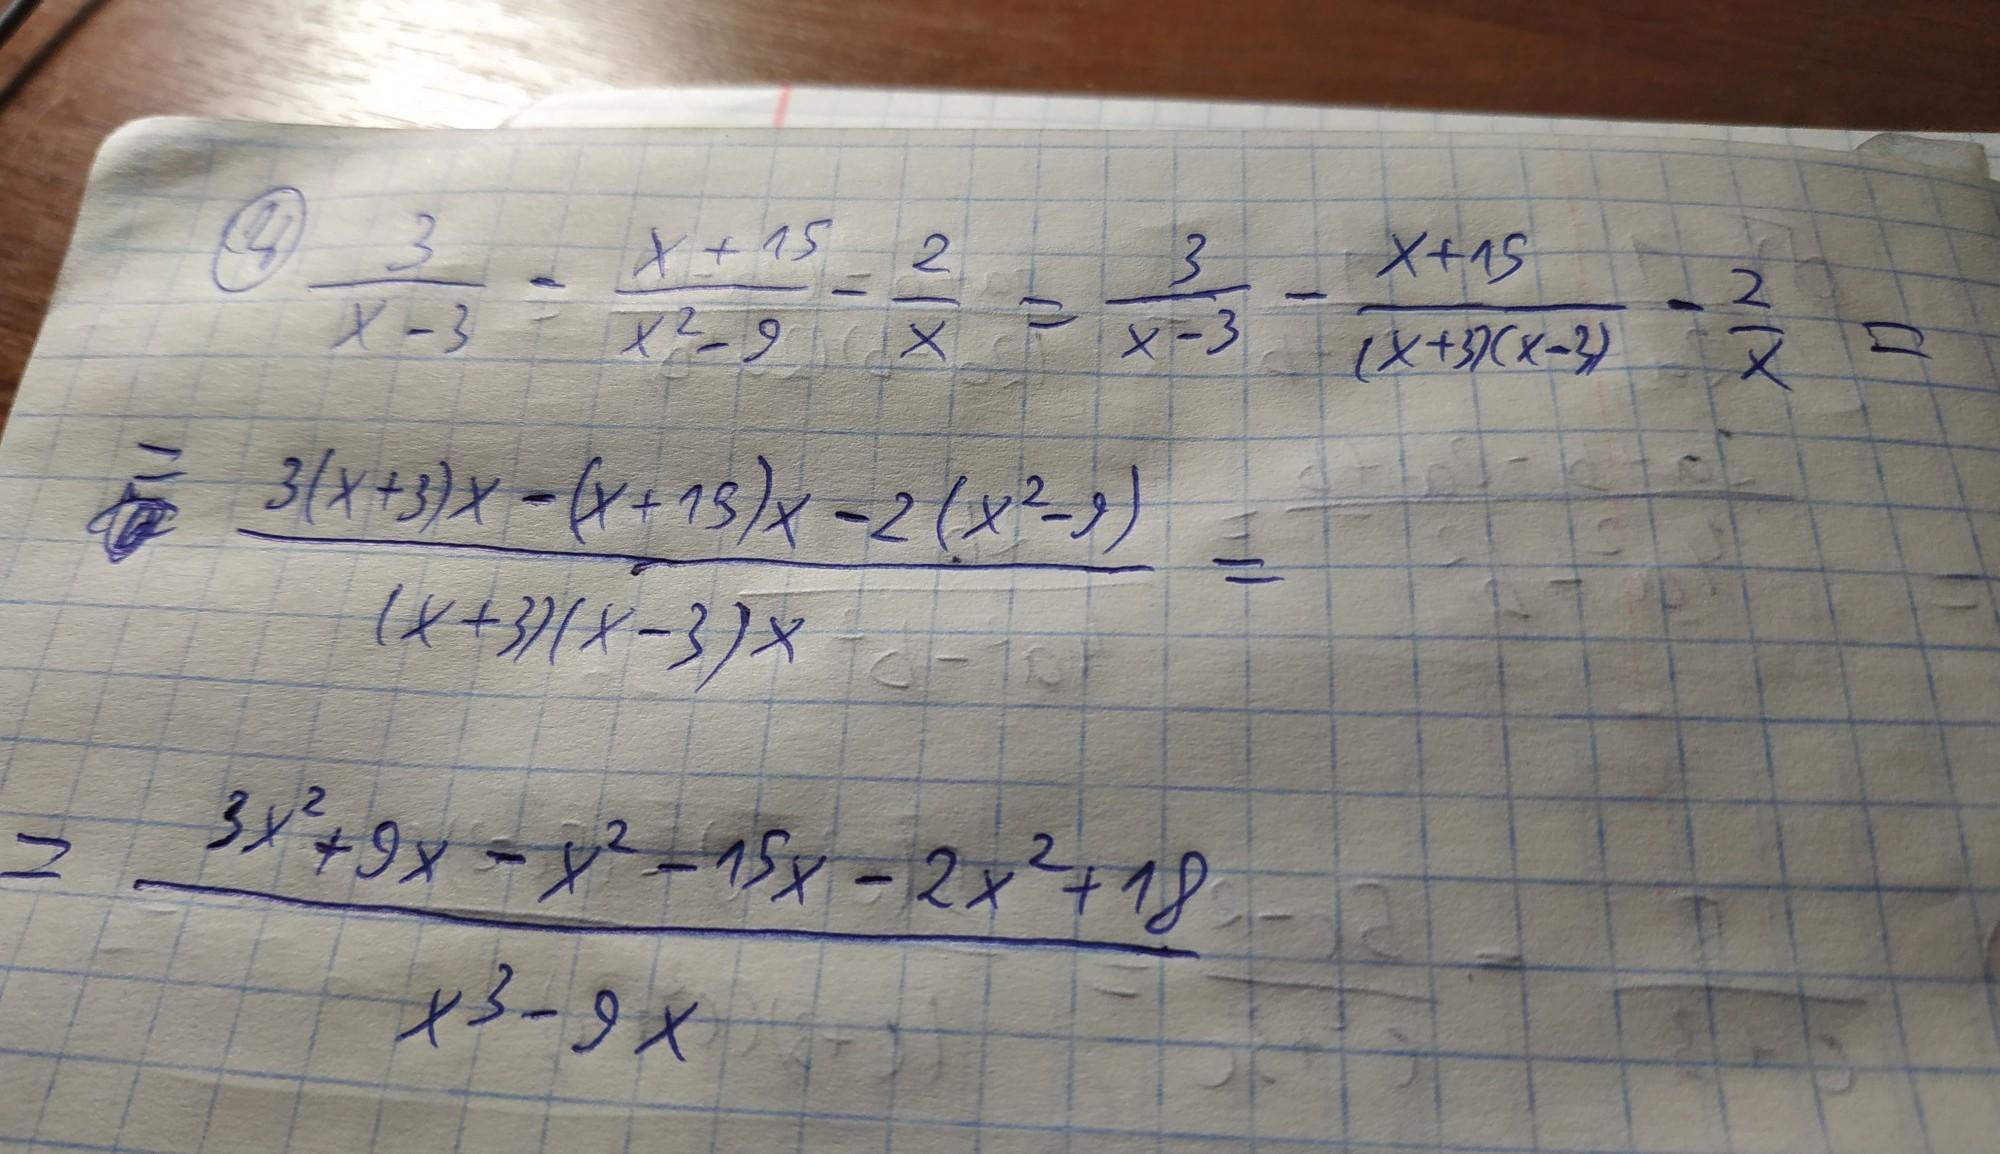 ④ 3/(x-3) - (x+15)/(x²-9) - 2/x = 3/(x-3) - (x+15)/((x+3)(x-3)) - 2/x =
= (3(x+3)x-(x+15)x-2(x²-9))/((x+3)(x-3)x) =
= (3x²+9x-x²-15x-2x²+18)/(x³-9x)